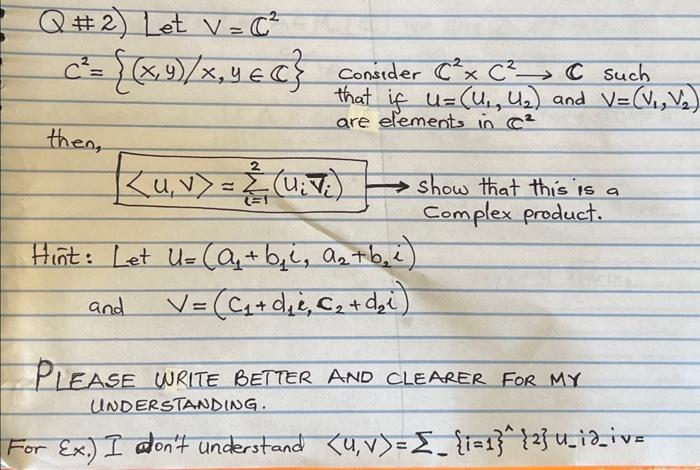 Q#2) Let V = ℂ²
ℂ² = {(x,y)/x,y ∈ ℂ} Consider ℂ² x ℂ² → ℂ such
that if u=(u₁,u₂) and v=(v₁,v₂)
are elements in ℂ²
then,
<u,v> = Σ_{i=1}^{2} (uᵢ v̅ᵢ) → show that this is a
Complex product.
Hint: Let u=(a₁+b₁i, a₂+b₂i)
and v=(c₁+d₁i, c₂+d₂i)
PLEASE WRITE BETTER AND CLEARER FOR MY
UNDERSTANDING.
For Ex.) I don't understand <u,v>=Σ_{i=1}^{2} u_i∂_iv=